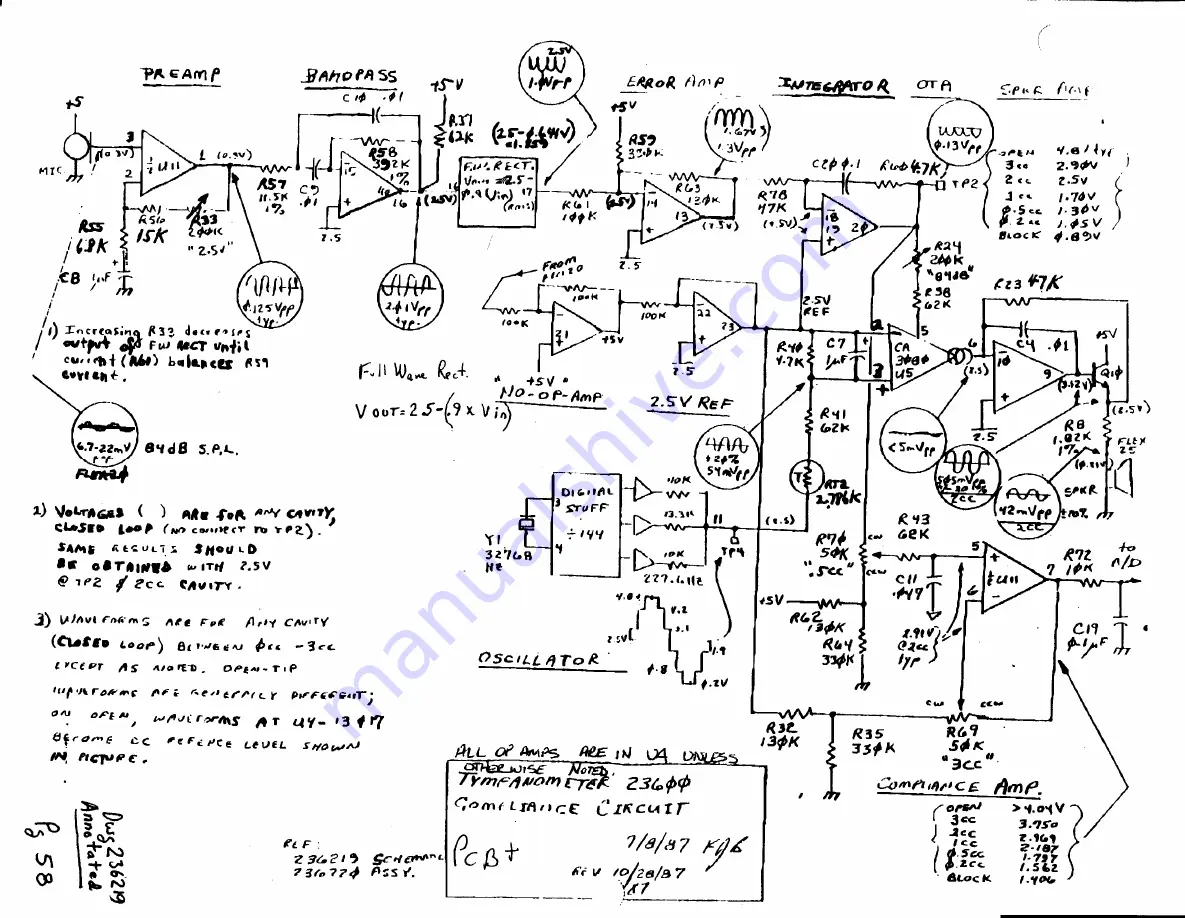 PREAMP
BANDPASS
ERROR AMP
INTEGRATOR
OTA
SPKR AMP
+5
MIC
3
(0.3V)
1/2 U11
2
1
R55
6.8K
R56
15K
R33
200K
"2.5V"
C8
1µF
Ø.125Vpp
typ.
R57
11.5K
1%
C9
.01
C10 .01
R58
392K
1%
15
16
(2.5V)
2.5
2.01Vpp
typ.
+5V
R37
62K
2.5V
1.0Vpp
FULL RECT.
17
(RMS)
R61
100K
(2.5V)
+5V
R59
330K
14
13
R63
120K
(2.5V)
2.5
1.67V
1.3Vpp
R78
47K
(2.5V)
C20 0.1
R60 47K
18
19
20
TP2
Ø.13Vpp
OPEN 4.81 typ
3cc 2.90V
2cc 2.5V
1cc 1.70V
Ø.5cc 1.30V
Ø.2cc 1.05V
BLOCK Ø.89V
R24
200K
"84dB"
R38
62K
1) Increasing R33 decreases
output of FW RECT until
current (R61) balances R59
current.
6.7-22mV
84dB S.P.L.
Full Wave Rect.
V out = 2.5-(.9 x Vin)
FROM
100K
100K
21
+5V
"+5V"
NO-OP-AMP
100K
22
23
2.5
2.5V REF
2.5V
REF
R40
4.7K
C7
1µF
2
3
5
6
CA
3080
U5
R23 47K
C4 .01
10
9
2.5
+5V
Q10
(2.5V)
R8
1.82K
1%
FLEX
25
SPKR
<5mVpp
2cc
42mVpp
2cc
±10%
±20%
54mVpp
R41
62K
RT2
2.786K
2) VOLTAGES ( ) ARE FOR ANY CAVITY,
CLOSED LOOP (NO CONNECT TO TP2).
SAME RESULTS SHOULD
BE OBTAINED WITH 2.5V
@ TP2 & 2CC CAVITY.
Y1
32768
HZ
3
4
DIGITAL
STUFF
÷144
13.3K
10K
227.6HZ
11
TP4
(2.5)
4.8
4.2
3.1
2.5V
1.9
Ø.8
Ø.2V
OSCILLATOR
R70
50K
".5cc"
CW
CCW
+5V
R62
130K
R64
330K
R43
62K
C11
.047
2.91V
@2cc
typ
5
6
7
1/2 U11
R72
10K
to
A/D
C19
0.1µF
3) WAVEFORMS ARE FOR ANY CAVITY
(CLOSED LOOP) BETWEEN Øcc - 3cc
EXCEPT AS NOTED. OPEN-TIP
WAVEFORMS ARE GENERALLY DIFFERENT;
ON OPEN, WAVEFORMS AT U4-13 & 17
BECOME DC REFENCE LEVEL SHOWN
IN PICTURE.
R32
130K
R35
330K
CW
CCW
R69
50K
"3CC"
COMPLIANCE AMP.
OPEN >4.04V
3cc 3.750
2cc 2.969
1cc 2.187
Ø.5cc 1.797
Ø.2cc 1.562
BLOCK 1.406
ALL OP AMPS ARE IN U4 UNLESS
OTHERWISE NOTED.
TYMPANOMETER 23600
COMPLIANCE CIRCUIT
PCB+
7/8/87 KAB
REV 10/28/87
REF:
236219 SCHEMATIC
236220 ASSY.
Dwg 236219
Annotated
Pg 58
manualshive.com